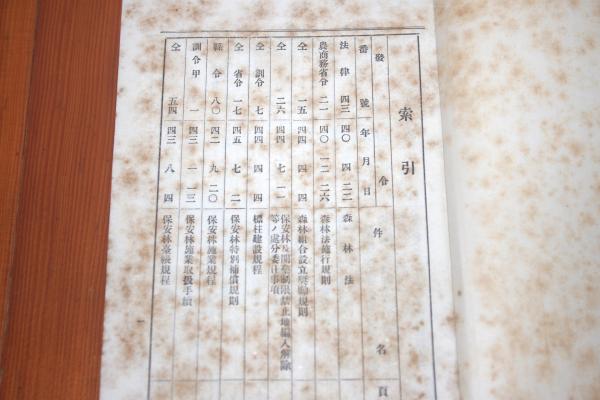 索引
發令 番號 年月日 件名 頁
法律 四三 四〇 四 二二 森林法
農商務省令 二一 四〇 一二 二六 森林法施行規則
仝 一五 四四 四 四 森林組合設立規則
仝 二六 四四 七 一 保安林及開墾制限禁止地編入解除等ノ處分委任事項
仝 訓令 七 四四 四 標柱建設規程
仝 省令 一七 四五 七 二 保安林特別補償規則
縣令 八〇 四二 九 二〇 保安林施業規程
訓令甲 一 四三 一 一三 保安林施業取扱手續
仝 五四 四三 八 四 保安林臺帳規程